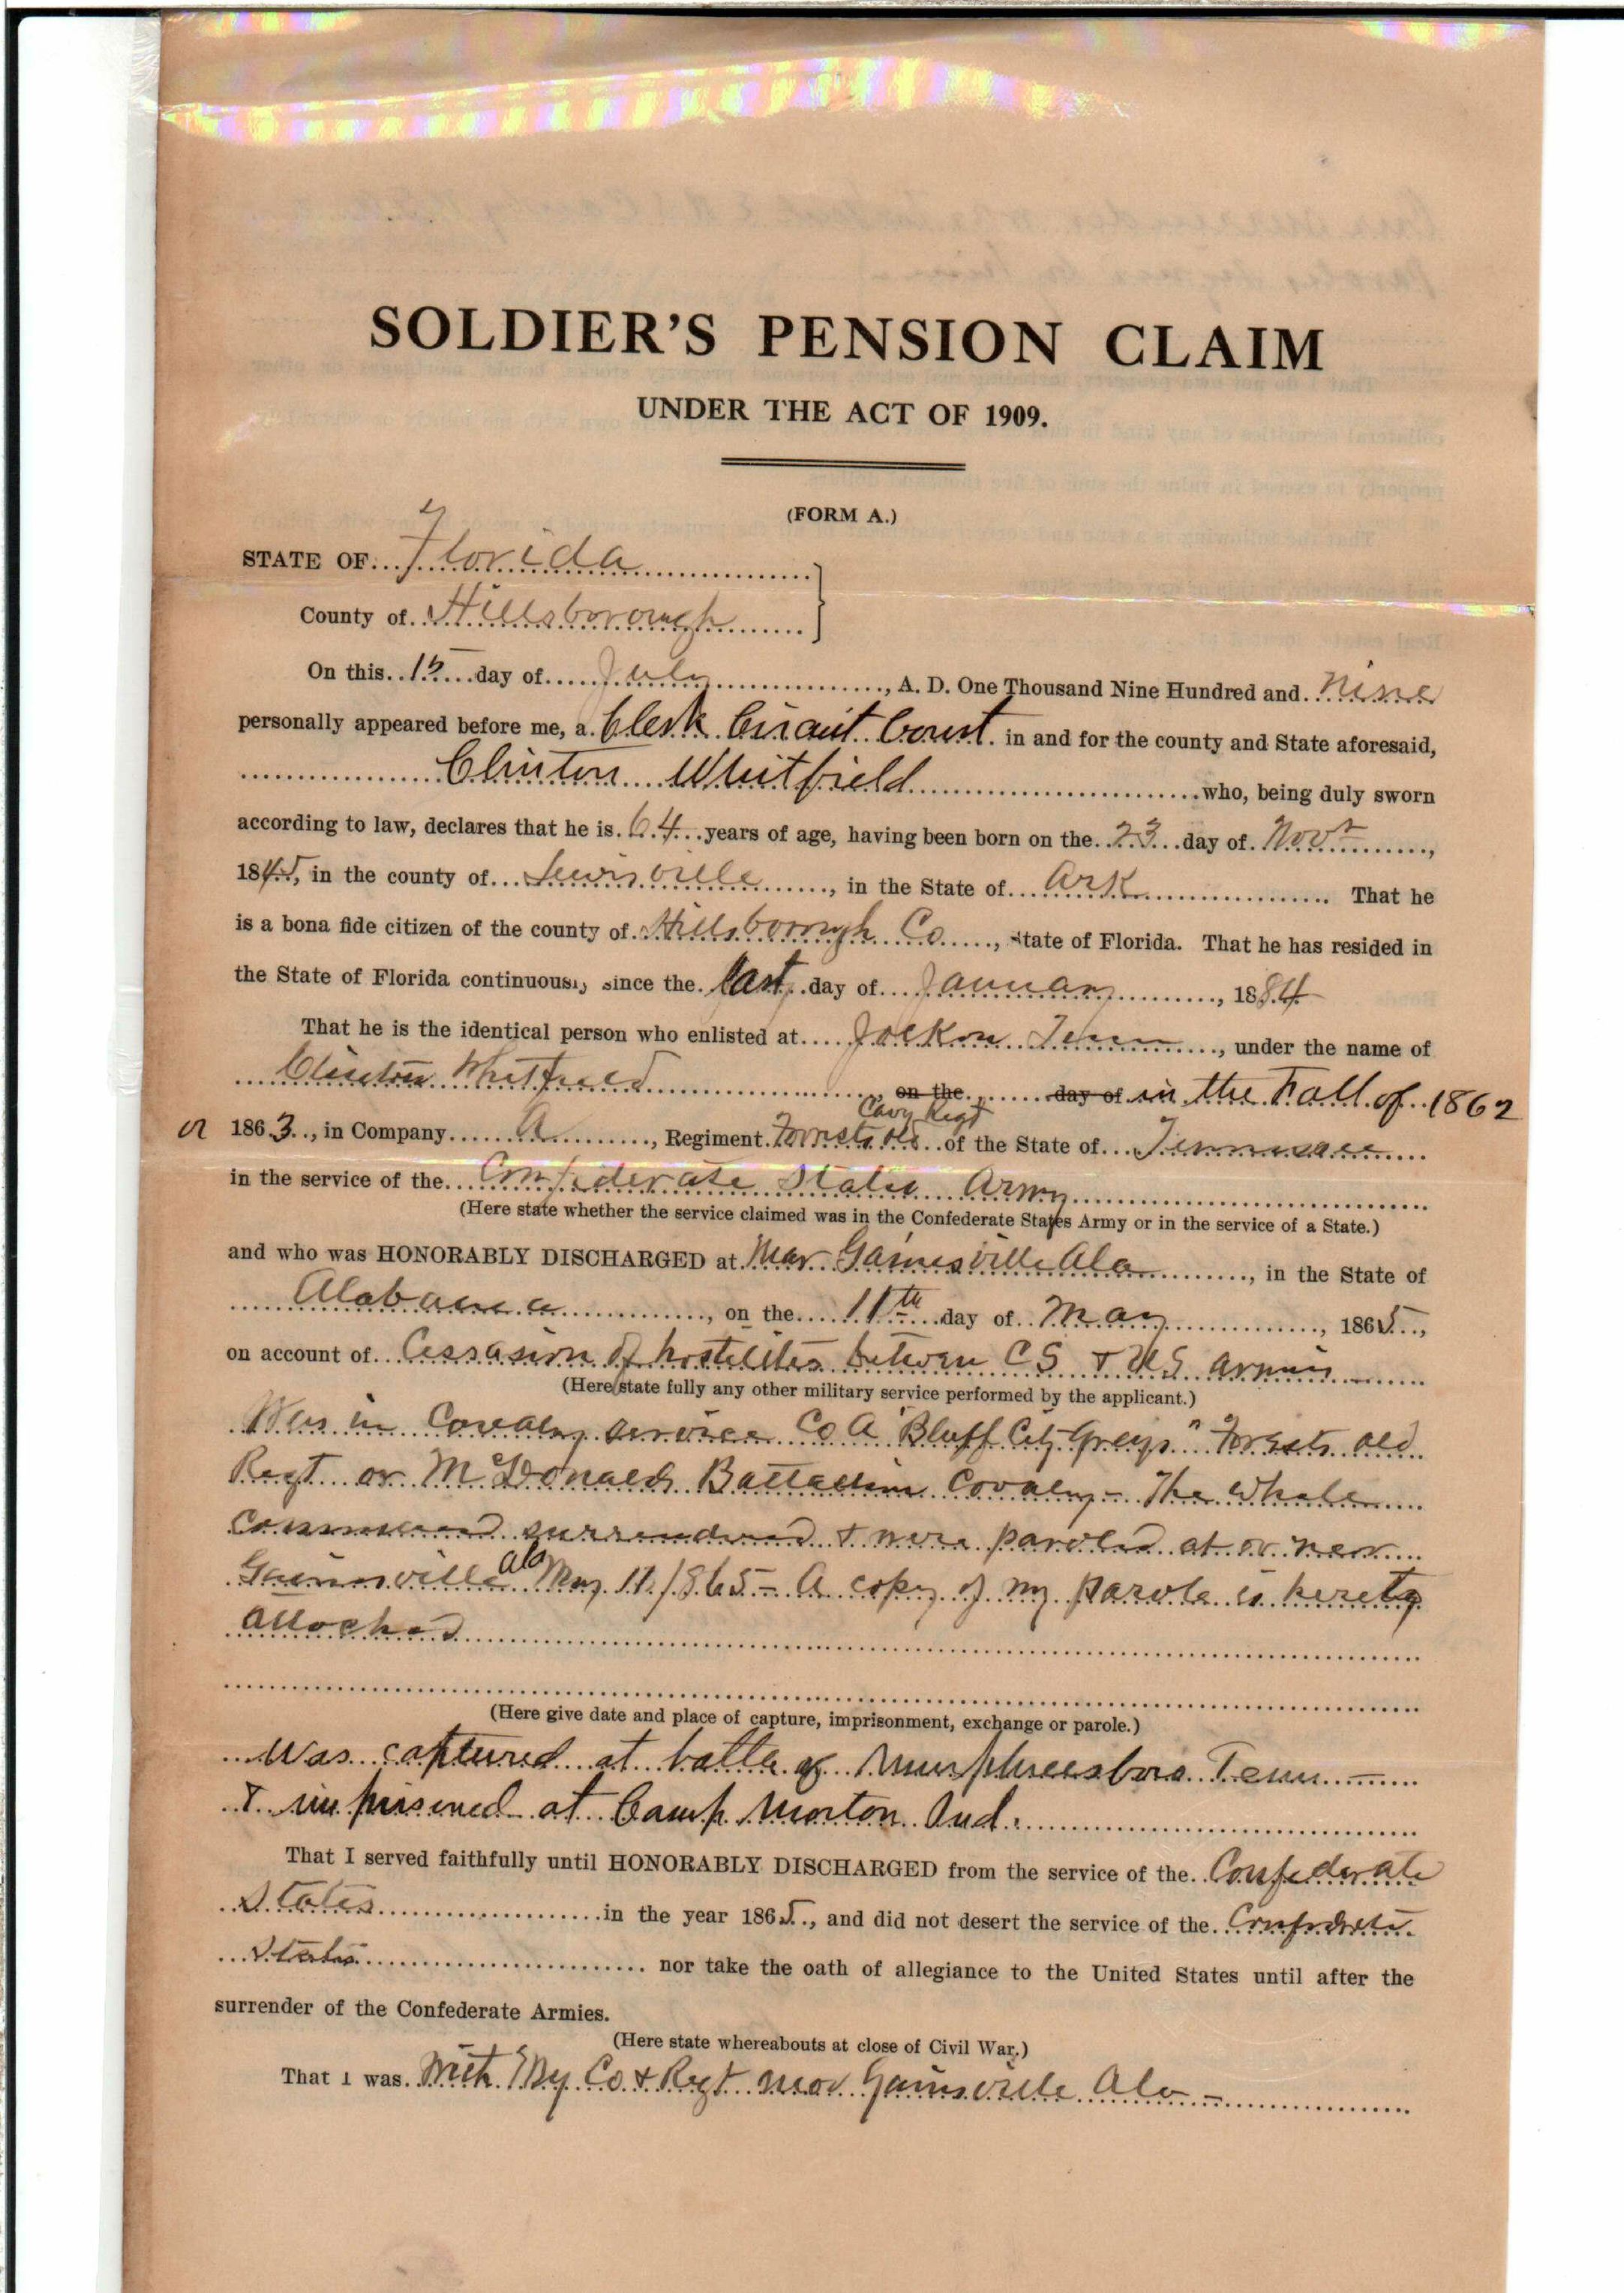 SOLDIER'S PENSION CLAIM
UNDER THE ACT OF 1909.
(FORM A.)
STATE OF Florida
County of Hillsborough
On this 15 day of July, A. D. One Thousand Nine Hundred and nine
personally appeared before me, a Clerk Circuit Court in and for the county and State aforesaid,
Clinton Whitfield who, being duly sworn
according to law, declares that he is 64 years of age, having been born on the 23 day of Novr,
1845, in the county of Lewisville, in the State of Ark That he
is a bona fide citizen of the county of Hillsborough Co, State of Florida. That he has resided in
the State of Florida continuously since the last day of January, 1884
That he is the identical person who enlisted at Jackson Tenn, under the name of
Clinton Whitfield, on the day of in the Fall of 1862
or 1863, in Company A, Regiment Forrests old Cavy Regt of the State of Tennessee
in the service of the Confederate States Army
(Here state whether the service claimed was in the Confederate States Army or in the service of a State.)
and who was HONORABLY DISCHARGED at Near Gainesville Ala, in the State of
Alabama, on the 11th day of May, 1865,
on account of Cessasion of hostilities between CS & US armies
(Here state fully any other military service performed by the applicant.)
Was in Cavalry service Co A "Bluff City Greys" Forests old
Regt or McDonalds Battalion Cavalry - The whole
command surrendered & were paroled at or near
Gainsville Ala May 11/1865 - A copy of my parole is hereto
attached
(Here give date and place of capture, imprisonment, exchange or parole.)
Was captured at battle of Murphreesboro Tenn
& imprisoned at Camp Morton Ind.
That I served faithfully until HONORABLY DISCHARGED from the service of the Confederate
States in the year 1865, and did not desert the service of the Confederate
States nor take the oath of allegiance to the United States until after the
surrender of the Confederate Armies.
(Here state whereabouts at close of Civil War.)
That I was With My Co & Regt near Gainsville Ala -